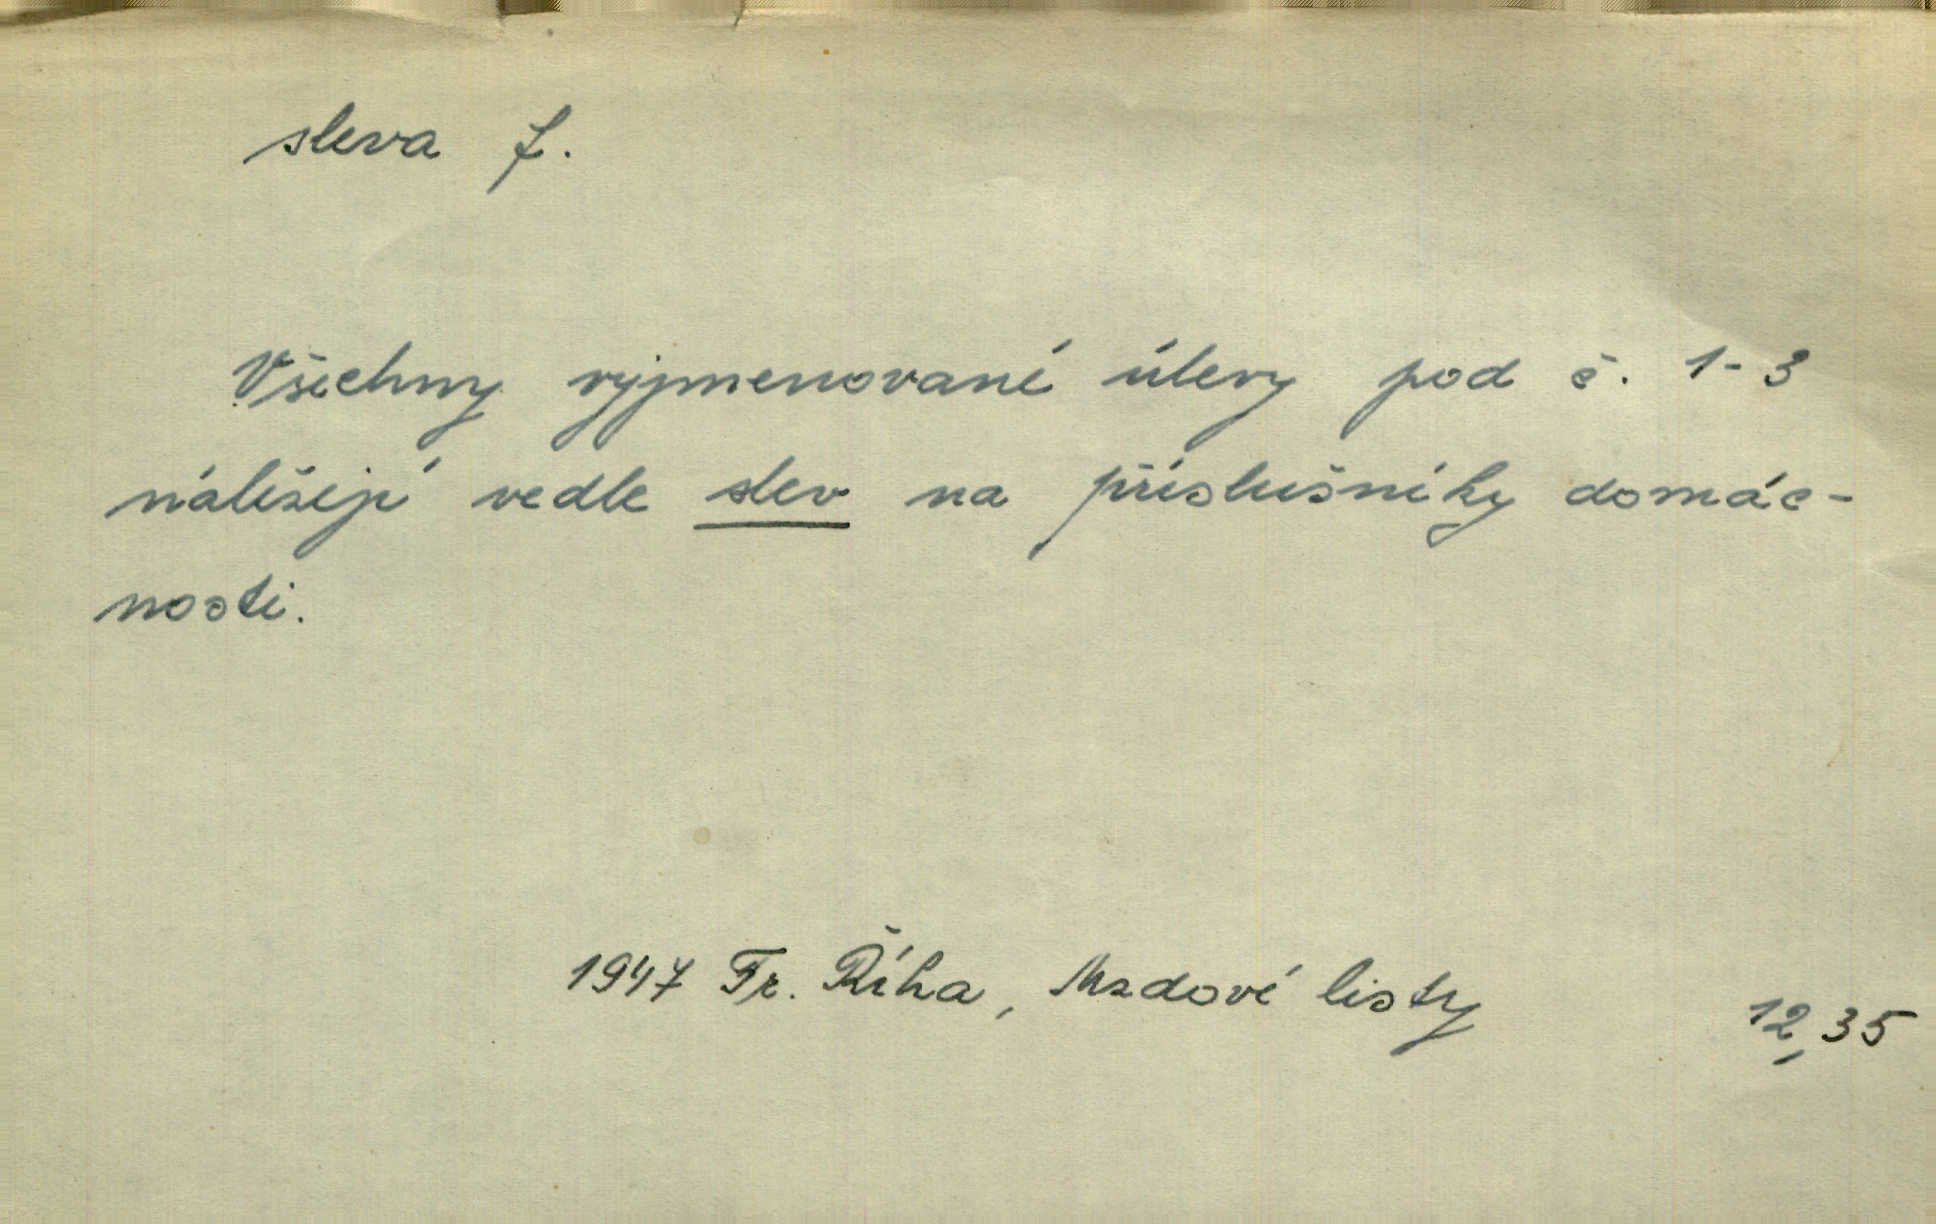 sleva f.
Všechny vyjmenované úlevy pod č. 1-3
náležejí vedle slev na příslušníky domác-
nosti.
1947 Fr. Říha, Mzdové listy
12,35